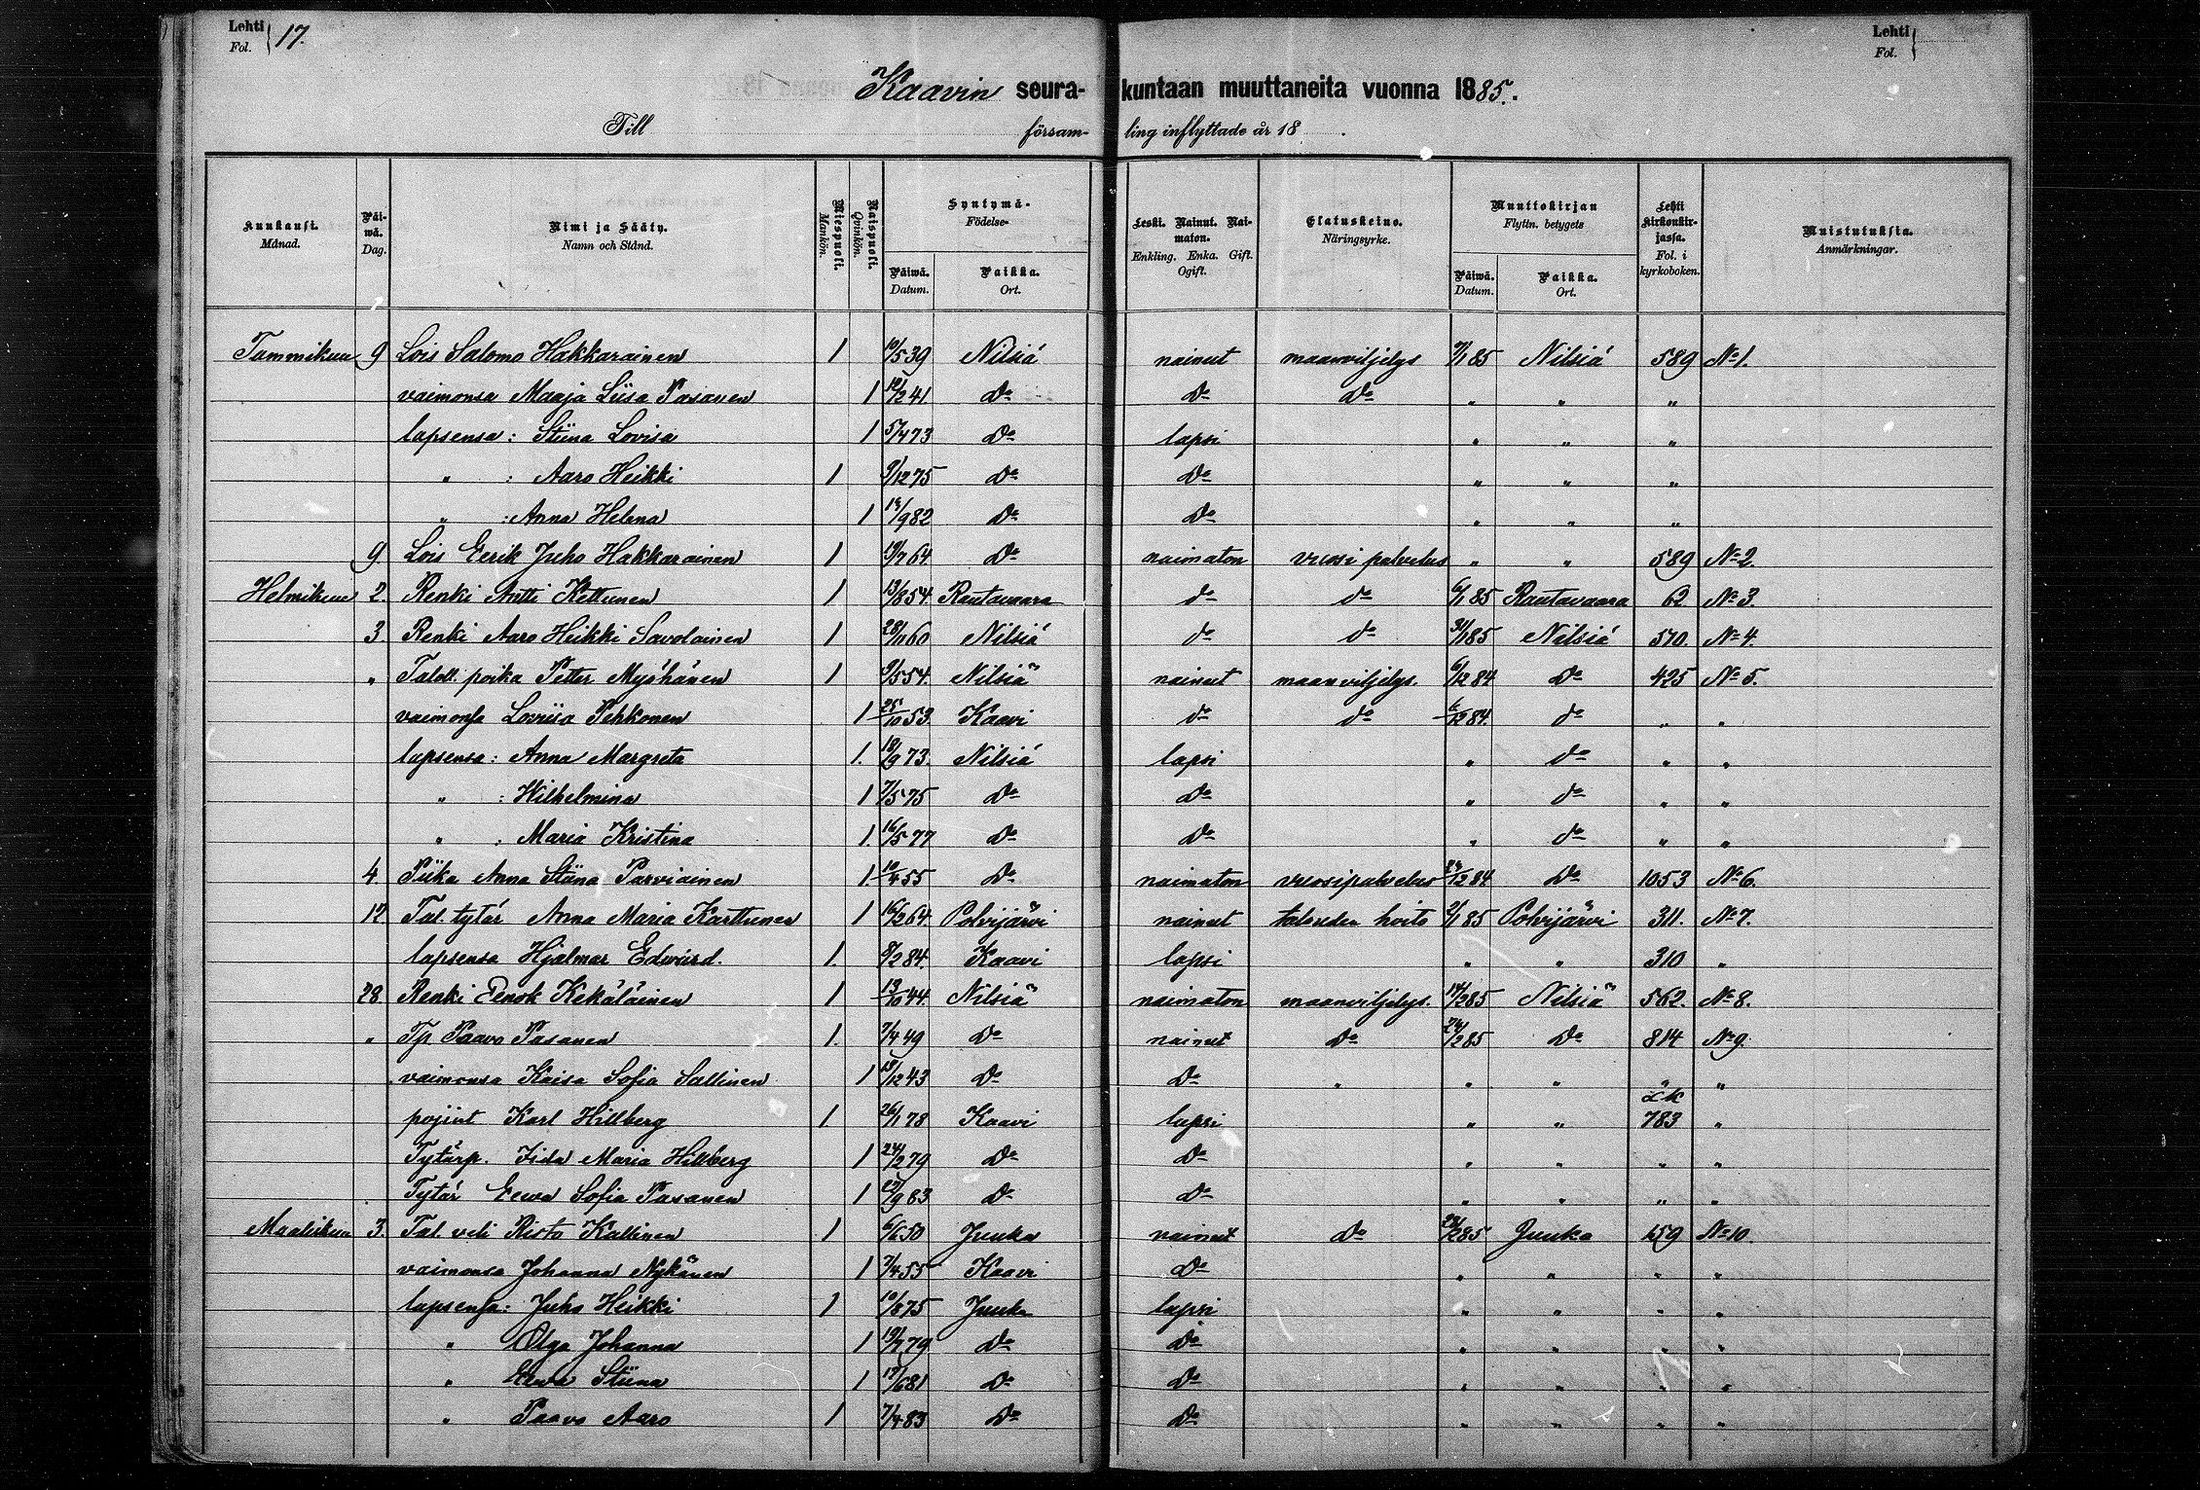 Lehti Fol. } 17. Lehti Fol. }
Kaavin seura- kuntaan muuttaneita vuonna 1885.
Till försam- ling inflyttade år 18 .
Kuukausi. Månad. Päi-wä. Dag. Nimi ja Sääty. Namn och Stånd. Miespuoli. Mankön. Naispuoli. Qvinkön. Syntymä- Födelse- Päiwä. Datum. Paikka. Ort. Leski. Nainut. Nai-maton. Enkling. Enka. Gift. Ogift. Elatuskeino. Näringsyrke. Muuttokirjan Flyttn. betygets Päiwä. Datum. Paikka. Ort. Lehti Kirkonkir-jassa. Fol. i kyrkoboken. Muistutuksia. Anmärkningar.
Tammikuu 9 Lois Salomo Hakkarainen 1 10/5 39 Nilsiä nainut maanviljelys 7/1 85 Nilsiä 589 No 1.
vaimonsa Maaja Liisa Pasanen 1 12/2 41 Do Do Do " " "
lapsensa: Stiina Lovisa 1 5/4 73 Do lapsi " " "
" : Aaro Heikki 1 9/12 75 Do Do " " "
" : Anna Helena 1 14/9 82 Do Do " " "
9 Lois Eerik Juho Hakkarainen 1 19/7 64 Do naimaton vuosi palvelus " " 589 No 2.
Helmikuu 2. Renki Antti Kettunen 1 13/8 54. Rautavaara do do 6/1 85 Rautavaara 62 No 3.
3 Renki Aaro Heikki Savolainen 1 28/11 60 Nilsiä do do 31/1 85 Nilsiä 570. No 4.
" Talall. poika Petter Myöhänen 1 9/5 54. Nilsiä nainut maanviljelys. 6/12 84 Do 425 No 5.
vaimonsa Loviisa Pehkonen 1 25/10 53. Kaavi do do 6/12 84. do " "
lapsensa: Anna Margreta 1. 18/9 73. Nilsiä lapsi " do " "
" : Wilhelmina 1 7/5 75 Do Do " do " "
" : Maria Kristina 1. 16/5 77 Do Do " do " "
4 Piika Anna Stiina Parviainen 1. 10/4 55 Do naimaton vuosipalvelus 27/12 84 Do 1053 No 6.
12 Tal. tytär Anna Maria Karttunen 1 16/2 64. Polvijärvi nainut talouden hoito 2/1 85 Polvijärvi 311. No 7.
lapsensa Hjalmar Edvard. 1. 8/2 84. Kaavi lapsi " " 310 "
28 Renki Eenok Kekäläinen 1 13/10 44. Nilsiä naimaton maanviljelys. 14/2 85 Nilsiä 562. No 8.
" Tp Paavo Pasanen 1. 7/4 49 Do nainut Do 24/2 85 Do 814 No 9.
vaimonsa Kaisa Sofia Sallinen 1 18/12 43 Do Do " " " " "
pojint Karl Hillberg 1 26/1 78 Kaavi lapsi " " 783 "
Tytärp. Iida Maria Hillberg 1 24/2 79 Do Do " " " "
Tytär Eewa Sofia Pasanen 1 25/9 83 Do Do " " " "
Maaliskuu 3. Tal. veli Risto Kallinen 1 6/6 50 Juuka nainut Do 28/2 85 Juuka 159 No 10.
vaimonsa Johanna Nykänen 1 7/4 55 Kaavi Do " " " "
lapsensa: Juho Heikki 1 10/8 75 Juuka lapsi " " " "
" Olga Johanna 1 19/2 79 Do Do " " " "
" Eewa Stiina 1 17/6 81 Do Do " " " "
" Paavo Aaro 1 7/4 83 Do Do " " " "